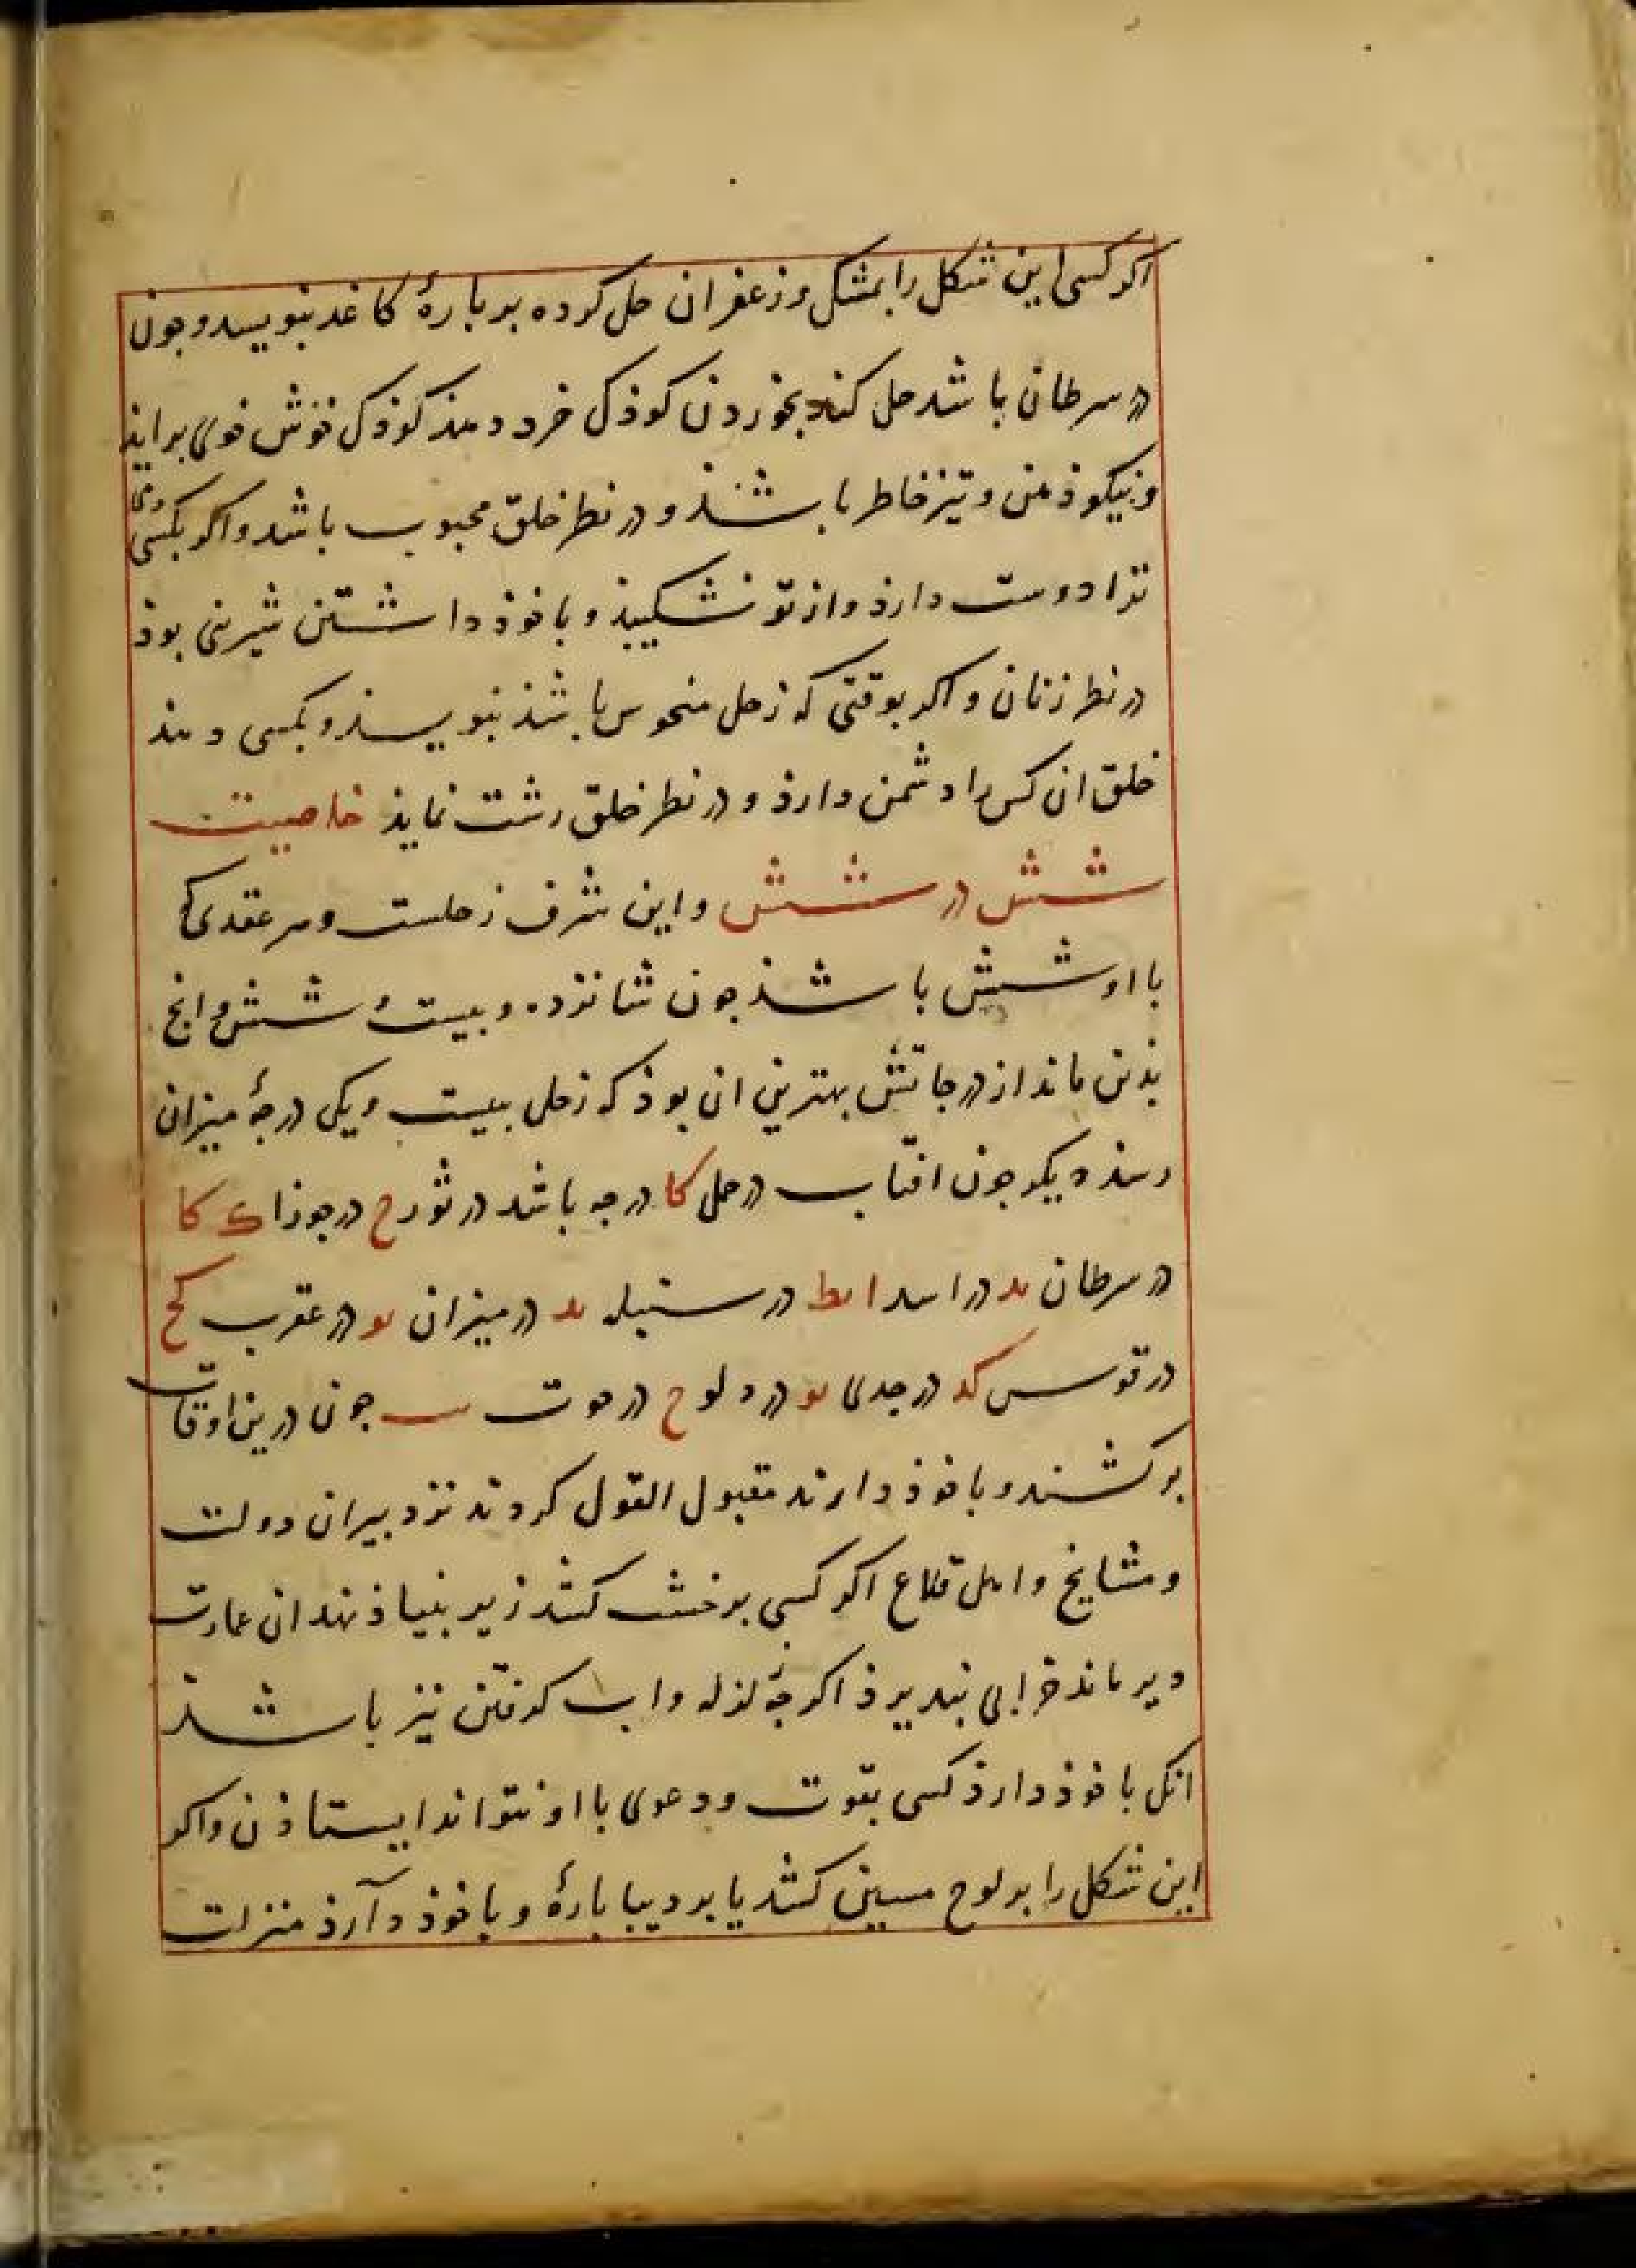 اکر کسی این شکل را بمشک و زعفران حل کرده بر بارهٔ کاغد بنویسد و جون
در سرطان باشد حل کند بخوردن کوذک خرد دهند کوذک خوش خوی براید
و نیکو ذهن و تیز خاطر باشذ و در نطر خلق محبوب باشد و اکر بکسی دهی
ترا دوست دارذ و از تو نشکیبذ و با خوذ داشتن شیرینی بوذ
در نطر زنان و اکر بوقتی که زحل منحوس باشذ بنویسند و بکسی دهند
خلق ان کس را دشمن دارذ و در نطر خلق زشت نمایذ خاصیت
شش در شش و این شرف زحلست و هر عقدی که
با او شش باشذ جون شانزده و بیست و شش و انج
بذین ماند از درجاتش بهترین ان بوذ که زحل بیست و یکی درجهٔ میزان
رسذ دیکر جون افتاب در حمل کا درجه باشد در ثور ح در جوزا ک کا
در سرطان ىد در اسد ا ىط در سنبله ىد در میزان ىو در عقرب کح
در قوس کد در جدی ىو در دلو ح در حوت ىب جون درین اوقات
برکشند و با خوذ دارند مقبول القول کردند نزد بیران دولت
و مشایخ و اهل قلاع اکر کسی بر خشت کشد زیر بنیاذ نهد ان عمارت
دیر ماند خرابی نبذیرذ اکرجه زلزله و اب کرفتن نیز باشذ
انک با خوذ دارذ کسی بقوت و دعوی با او نتواند ایستاذن و اکر
این شکل را بر لوح مسین کشد یا بر دیبا بارهٔ و با خوذ دآرذ منزلت